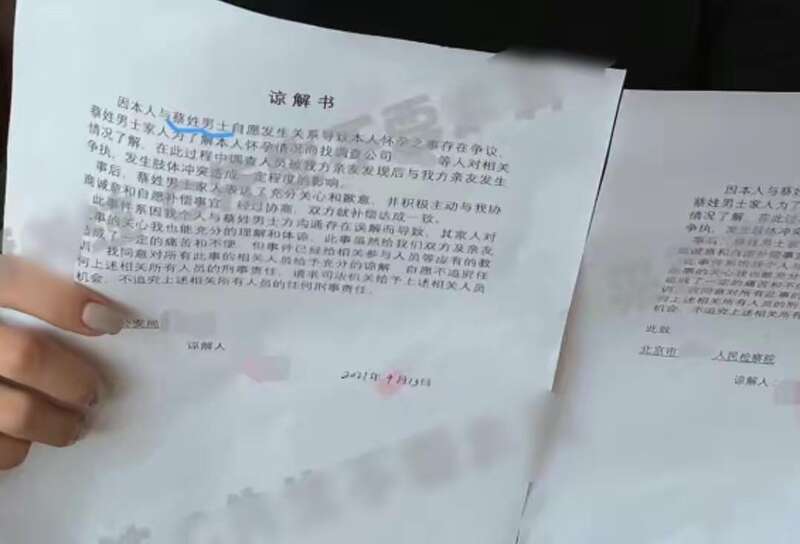 谅解书
因本人与蔡姓男士自愿发生关系导致本人怀孕之事存在争议，
蔡姓男士家人为了解本人怀孕情况而找调查公司 等人对相关
情况了解，在此过程中调查人员被我方亲友发现后与我方亲友发生
争执，发生肢体冲突造成一定程度的影响。
事后，蔡姓男士家人表达了充分关心和歉意，并积极主动与我协
商诚意和自愿补偿事宜，经过协商，双方就补偿达成一致。
此事件系因我个人与蔡姓男士方沟通存在误解而导致，其家人对
事的关心我也能充分的理解和体谅，此事虽然给我们双方及亲友
造成了一定的痛苦和不便，但事件已经给相关参与人员等应有的教
训，我同意对所有此事的相关人员给予充分的谅解，自愿不追究任
何上述相关所有人员的刑事责任，请求司法机关给予上述相关人员
机会，不追究上述相关所有人员的任何刑事责任。
公安局
谅解人
2021年9月13日
因本人与
蔡姓男士家人为了
情况了解，在此过
争执，发生肢体冲
事后，蔡姓男
商诚意和自愿补偿
此事件系因我
事的关心我也能充
造成了一定的痛苦
训，我同意对所有此事的
何上述相关所有人员的刑
机会，不追究上述相关所
此致
北京市 人民检察院
谅解人：